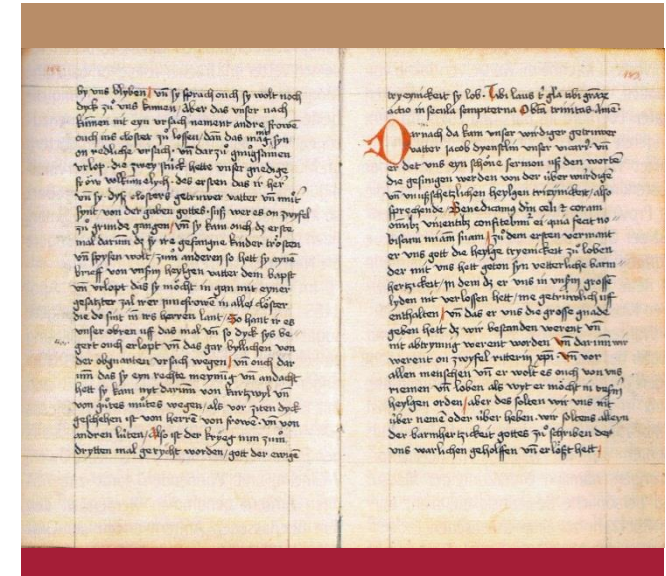 by uns blyben / uñ sy sprach ouch sy wolt noch
dyck zů uns kumen / Aber das unser nach
kumen nit eyn ursach nement andre frowē
ouch ins closter ze lossen / dañ das mag nit syn
on redliche ursach · uñ dar zů gnůgsamen
urlop · die zwey stück hette unser gnedige
frōw volkumelych · des ersten das ir her
uñ sy dysz closters getruwer vatter uñ můter
synt · von der gaben gottes · susz wer es on zwyfel
zů grunde gangen / uñ sy kam ouch dz erste
mal darum dz sy ire gefangne kinder trösten
uñ spysen wolt / zum anderen so hett sy eyne
brieff von unsm heylgen vatter dem bapst
uñ urlopt das sy möcht in gan mit eyner
gesatzter zal irer junckfrowē in alle clöster
die do sint in irs herren lant / So hant ir es
unser obren uff das mal uñ so dyck sys be
gert ouch erlopt uñ das gar byllichen von
der obgnanten ursach wegen / uñ ouch dar
um das sy eyn rechte meynung uñ andacht
hett sy kam nyt darum von kurtzwyl uñ
von gůtes můtes wegen / als vor ziten dyck
geschehen ist von herrē von frowē · uñ von
andren lüten / Also ist der kryeg nun zum
drytten mal gerycht worden / gott der ewigē
tryeynickeit sy lob · Tibi laus t gla tibi graꝝ
actio in secula sempiterna O bta trinitas Amē
Darnach da kam unser wirdiger getruwer
vatter iacob dyenstlin unser vicari · uñ
er det uns eyn schöne sermon uff den worten
die gesungen werden von der über wirdigē
uñ unusschetzlichen heylgen trieynickeit / also
sprechende / Benedicimus deū celi et coram
omibz viventibz confitebimur ei quia fecit no
biscum miam suam / zů dem ersten vermant
er uns gott die heylge tryeinickeit zů loben
der mit uns hett geton syn vetterliche barm
hertzickeit / in dem dz er uns in unsrm grosse
lyden nit verlossen hett / me getrüwlich uff
enthalten / uñ das er uns die grosse gnade
geben hett dz wir bestanden werent uñ
nit abtrynnig werent worden uñ darum wir
werent on zwyfel ritterin xpi · uñ vor
allen menschen uñ er wolt es ouch von uns
riemen uñ loben als wyt er möcht in unsrm
heylgen orden / aber des solten wir uns nit
über nemē oder über heben · wir soltens alleyn
der barmhertzickeit gottes zů schriben der
uns warlichen geholffen uñ erlöszt hett /